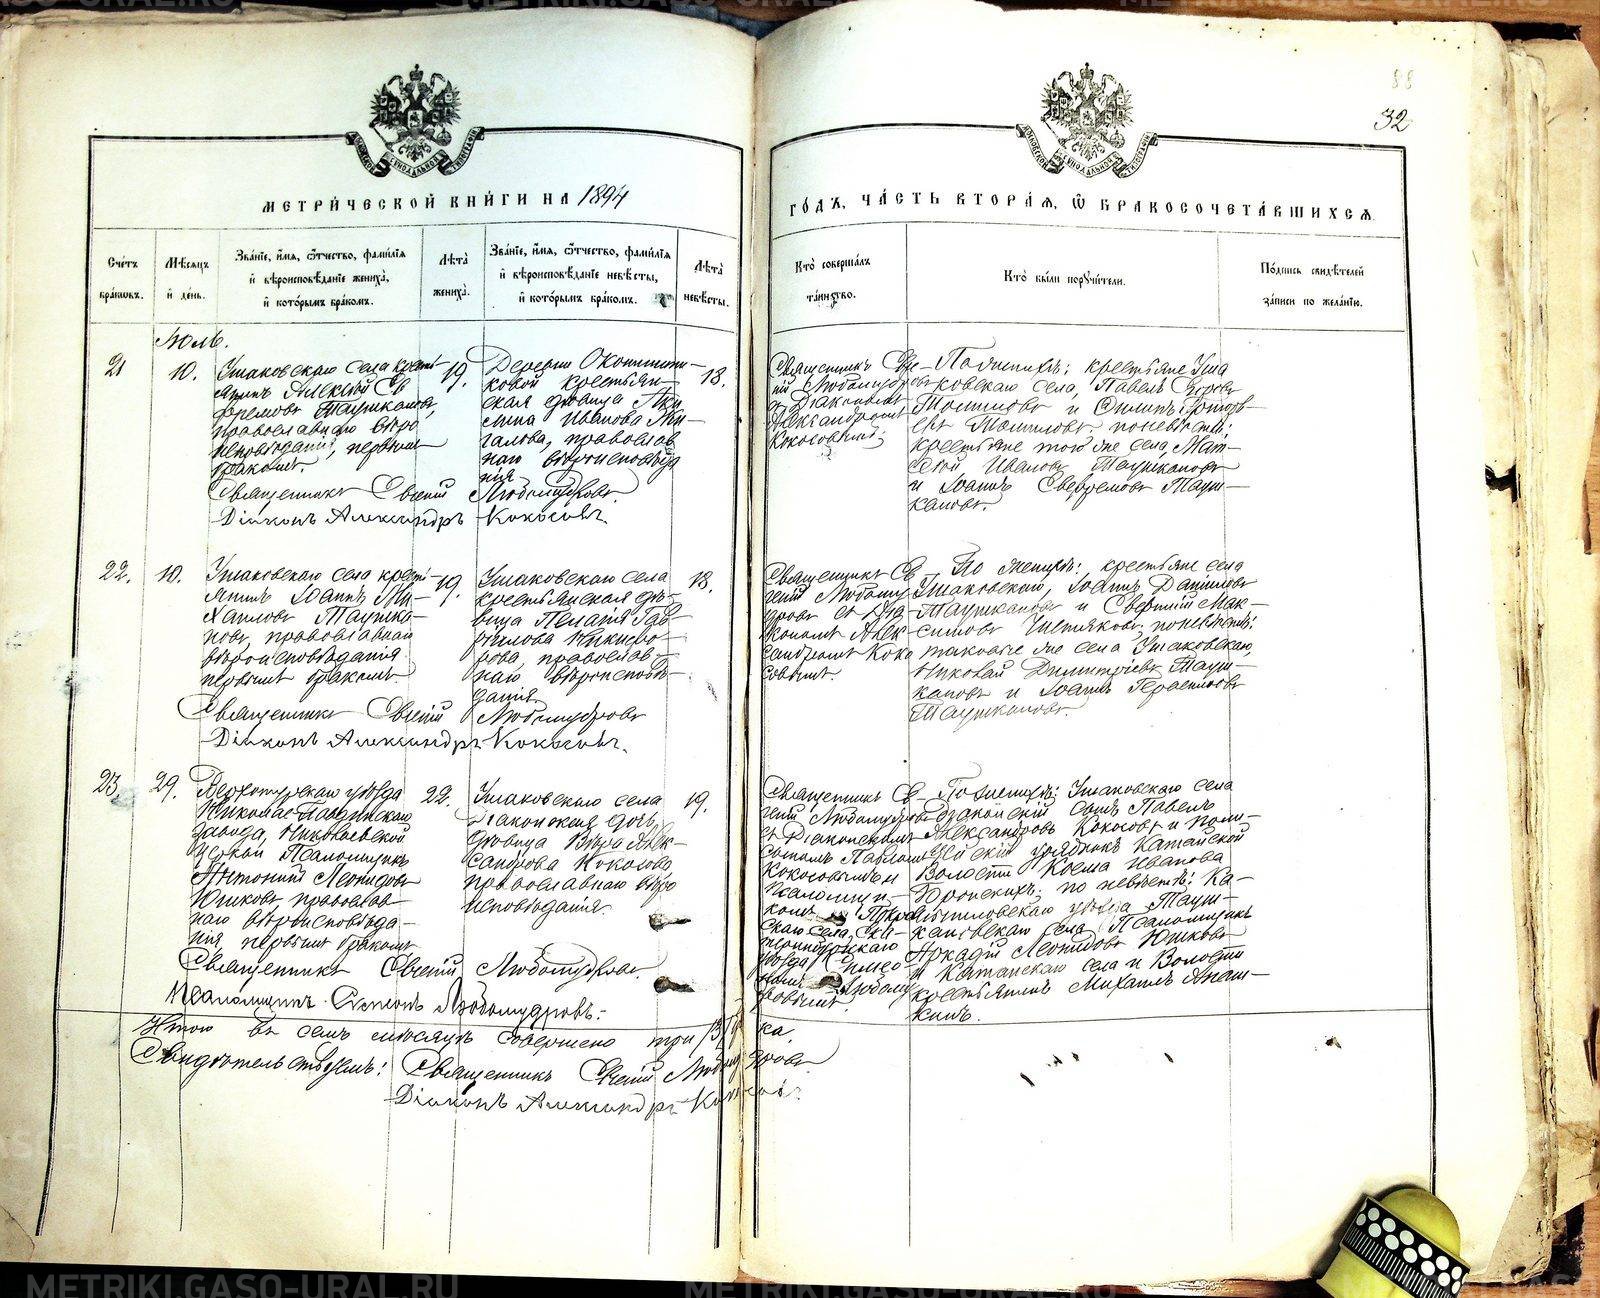 METRIKI.GASO-URAL.RU
88
32
МЕТРИ́ЧЕСКОЙ КНИ́ГИ НА 1894
ГО́ДЪ, ЧА́СТЬ ВТОРА́Я, Ѿ БРАКОСОЧЕТА́ВШИХСЯ.
Сче́тъ бра́ковъ.
Мѣ́сяцъ и҆ де́нь.
Зва́нїе, и҆́мя, ѻ҆́тчество, фами́лїя
и҆ вѣроисповѣ́данїе жениха̀,
и҆ кото́рымъ бра́комъ.
Лѣта̀ жениха̀.
Зва́нїе, и҆́мя, ѻ҆́тчество, фами́лїя
и҆ вѣроисповѣ́данїе невѣ́сты,
и҆ кото́рымъ бра́комъ.
Лѣта̀ невѣ́сты.
Кто̀ соверша́лъ
та́инство.
Кто̀ бы́ли порꙋчи́тели.
По́дпись свидѣ́телей
за́писи по жела́нїю.
Июль.
21
10.
Ушаковскаго села кресть-
янинъ Алексѣй Ев
фремовъ Таушкановъ,
православнаго вѣро
исповѣданія, первымъ
бракомъ.
19.
Деревни
ковой крестьян-
ская дѣвица Аку
лина Иванова Жи-
галова, православ
наго вѣроисповѣда
нія
18.
Священникъ Евге-
ній Любомудровъ
съ Діакономъ
Александромъ
Кокосовымъ;
По женихѣ: крестьяне Уша
ковскаго села, Павелъ
и Филипъ
по невѣстѣ:
крестьяне того же села, Мат-
вѣй Ивановъ Таушкановъ
и Іоаннъ Евфремовъ Тауш-
кановъ.
Священникъ Евгеній Любомудровъ.
Діаконъ Александръ Кокосовъ.
22.
10.
Ушаковскаго села кресть-
янинъ Іоаннъ Ми-
хаиловъ Таушка-
новъ, православнаго
вѣроисповѣданія
первымъ бракомъ.
19.
Ушаковскаго села
крестьянская дѣ-
вица Пелагія Гав-
рилова Никифо-
рова, православ-
наго вѣроисповѣ-
данія.
18.
Священникъ Ев
геній Любому
дровъ съ Діа-
кономъ Алек-
сандромъ Коко
совымъ.
По женихѣ: крестьяне села
Ушаковскаго, Іоаннъ Даніиловъ
Таушкановъ и Евгеній Мак-
симовъ Чистяковъ; по невѣстѣ:
таковые же села Ушаковскаго,
Николай Димитріевъ Тауш-
кановъ и Іоаннъ Герасимовъ
Таушкановъ.
Священникъ Евгеній Любомудровъ
Діаконъ Александръ Кокосовъ.
23.
29.
Верхотурскаго уѣзда
Николае-Павдинскаго
завода, Николаевской
церкви Псаломщикъ
Антоній Леонидовъ
Юшковъ православ
наго вѣроисповѣда-
нія, первымъ бракомъ
22.
Ушаковскаго села
Діаконская дочь,
дѣвица Вѣра Алек-
сандрова Кокосова
православнаго вѣро
исповѣданія.
19.
Священникъ Ев
геній Любомудровъ
съ Діаконскимъ
сыномъ Павломъ
Кокосовымъ и
псаломщи-
комъ
скаго села,
уѣзда
По женихѣ: Ушаковскаго села
Діаконскій сынъ Павелъ
Александровъ Кокосовъ и поли-
цейскій урядникъ Катайской
Волости Козма Ивановъ
по невѣстѣ: Ка-
мышловскаго уѣзда Тауш-
кановскаго села Псаломщикъ
Аркадій Леонидовъ Юшковъ
и Катайскаго села и Волости
крестьянинъ Михаилъ
Священникъ Евгеній Любомудровъ.
Псаломщикъ Любомудровъ.
Итого въ семъ мѣсяцѣ совершено три /3/ брака.
Свидѣтельствуемъ: Священникъ Евгеній Любомудровъ
Діаконъ Александръ Кокосовъ.
METRIKI.GASO-URAL.RU